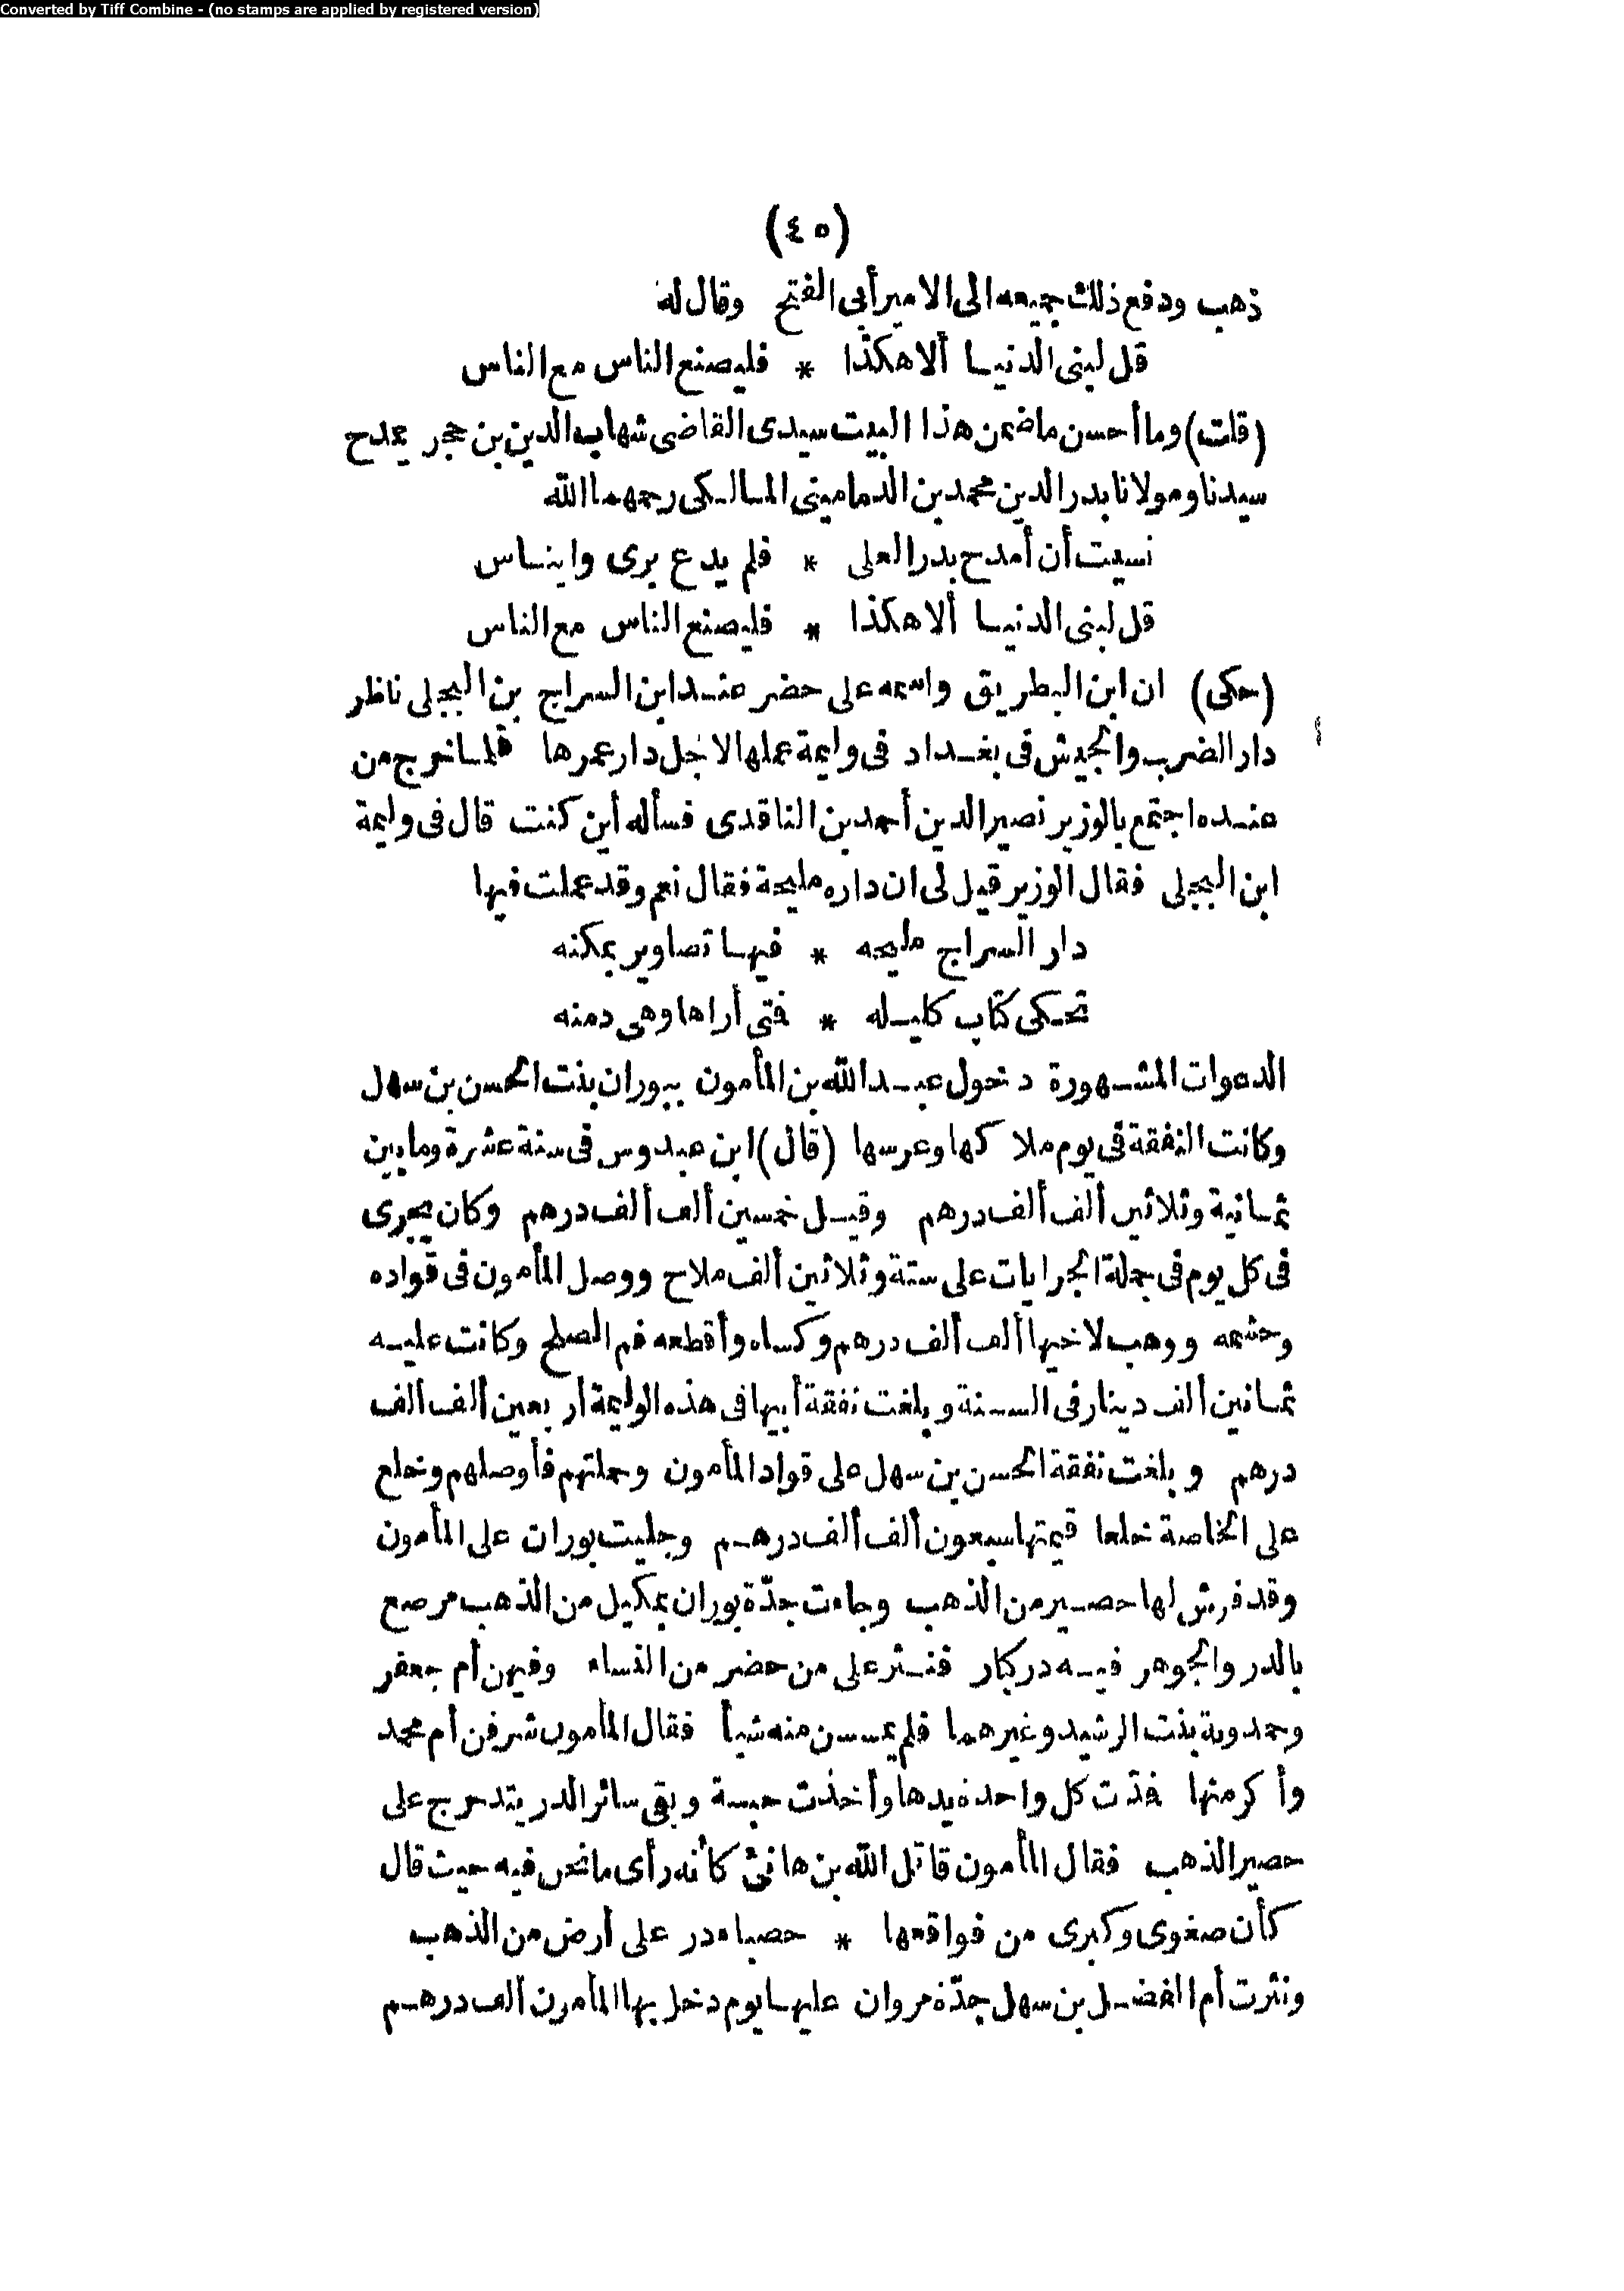 Converted by Tiff Combine - (no stamps are applied by registered version)
(٤٥)
ذهب ودفع ذلك جميعه الى الامير أبى الفتح وقال له
قل لبنى الدنيا ألا هكذا * فليصنع الناس مع الناس
(قلت) وما أحسن ما ضمن هذا البيت سيدى القاضى شهاب الدين بن حجر يمدح
سيدنا ومولانا بدر الدين محمد بن الدمامينى المالكى رحمهما الله
نسيت أن أمدح بدر العلى * فلم يدع برى وايناس
قل لبنى الدنيا ألا هكذا * فليصنع الناس مع الناس
(حكى) ان ابن البطريق واسمه على حضر عند ابن السراج بن البجلى ناظر
دار الضرب والجيش فى بغداد فى وليمة عملها لاجل دار عمرها فلما خرج من
عنده اجتمع بالوزير نصير الدين أحمد بن الناقدى فسأله أين كنت قال فى وليمة
ابن البجلى فقال الوزير قيل لى ان داره مليحة فقال نعم وقد عملت فيها
دار السراج مليحه * فيها تصاوير بمكنه
تحكى كتاب كليله * فتى أراها وهى دمنه
الدعوات المشهورة دخول عبد الله بن المأمون ببوران بنت الحسن بن سهل
وكانت النفقة فى يوم ملاكها وعرسها (قال) ابن عبدوس فى سنة عشرة ومايين
ثمانية وثلاثين ألف ألف درهم وقيل خمسين ألف ألف درهم وكان يجرى
فى كل يوم فى جملة الجرايات على ستة وثلاثين ألف ملاح ووصل المأمون فى قواده
وحشمه ووهب لاخيها ألف ألف درهم وكساه وأقطعه فم الصلح وكانت عليه
ثمانين ألف دينار فى السنة وبلغت نفقة أبيها فى هذه الوليمة أربعين ألف ألف
درهم وبلغت نفقة الحسن بن سهل على قواد المأمون وحملتهم فأوصلهم وخلع
على الخاصة خلعا قيمتها سبعون ألف ألف درهم وجليت بوران على المأمون
وقد فرش لها حصير من الذهب وجاءت جدّة بوران بمكيل من الذهب مرصع
بالدر والجوهر فيه در كبار فنثر على من حضر من النساء وفيهن أم جعفر
وحمدوية بنت الرشيد وغيرهما فلم يمسسن منه شيأ فقال المأمون شرفن أم محمد
وأكرمنها فمدّت كل واحدة يدها وأخذت حبة وبقى سائر الدر يتدحرج على
حصير الذهب فقال المأمون قاتل الله بن هانئ كأنه رأى ما نحن فيه حيث قال
كأن صغرى وكبرى من فواقعها * حصباء در على أرض من الذهب
ونثرت أم الفضل بن سهل جدّة مروان عليها يوم دخل بها المأمون ألف درهم